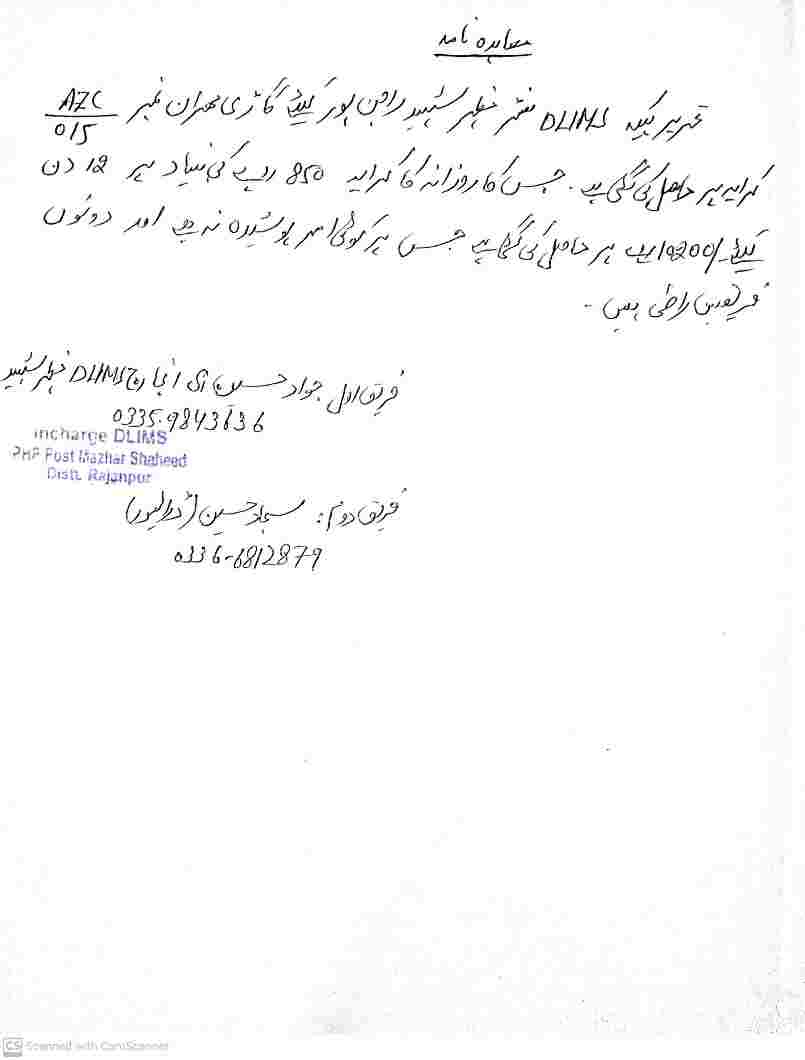 معاہدہ نامہ
تحریر کیا DLIMS دفتر مظہر شہید راجن پور کیلئے گاڑی مہران نمبر AZC/015
کرایہ پر حاصل کی گئی ہے۔ جس کا روزانہ کا کرایہ 850 روپے کی بنیاد پر 12 دن
کیلئے 10200/- روپے پر حاصل کی گئی ہے جس پر کوئی امر پوشیدہ نہ ہے اور دونوں
فریقین راضی ہیں۔
فریق اول جواد حسین انچارج DLIMS مظہر شہید
0335-9843636
Incharge DLIMS
PHP Post Mazhar Shaheed
Distt. Rajanpur
فریق دوم: سجاد حسین (ڈرائیور)
0336-6812879
CS Scanned with CamScanner